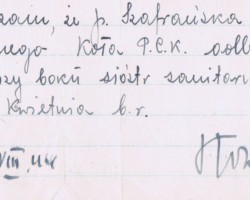 zam, że p. Szafrańska
nego Koła P.C.K. odb
zy boku sióstr sanitar
Kwietnia b.r.
VIII.44